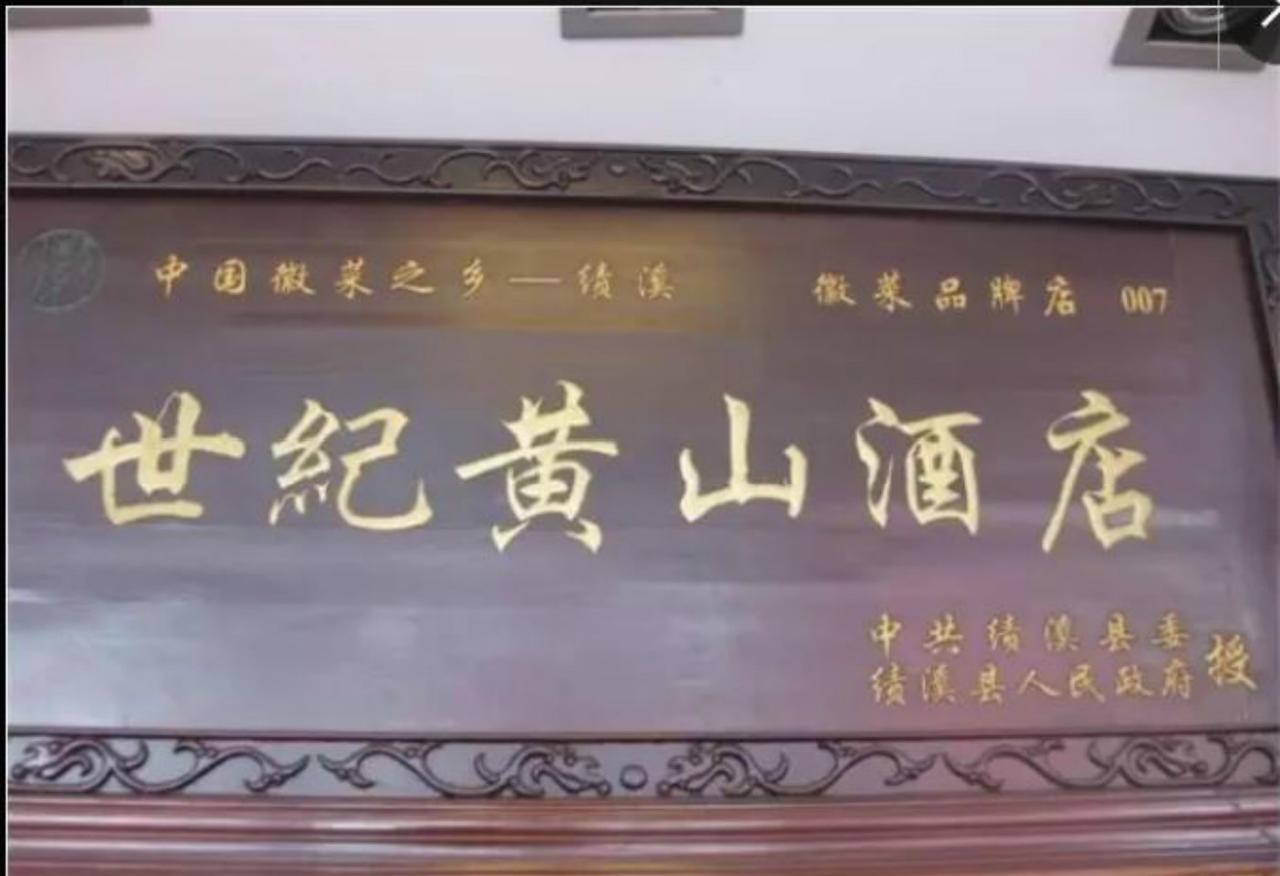 中国徽菜之乡——绩溪 徽菜品牌店 007
世纪黄山酒店
中共绩溪县委
绩溪县人民政府 授